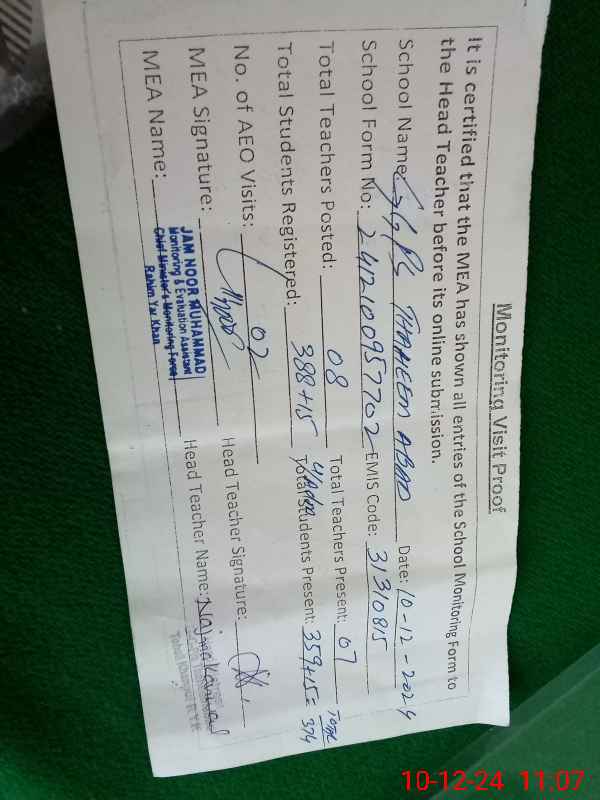 Monitoring Visit Proof
It is certified that the MEA has shown all entries of the School Monitoring Form to
the Head Teacher before its online submission.
School Name: GGPS THAHEEM ABAD Date: 10-12-2024
School Form No: 2412100957702 EMIS Code: 31310815
Total Teachers Posted: 08 Total Teachers Present: 07
Total Students Registered: 388+15 Total Students Present: 359+15= 374 Total
No. of AEO Visits: 02
MEA Signature: Head Teacher Signature:
MEA Name: JAM NOOR MUHAMMAD Head Teacher Name: Najma Kanwal
Monitoring & Evaluation Assistant
Chief Minister's Monitoring Force
Rahim Yar Khan
10-12-24 11:07